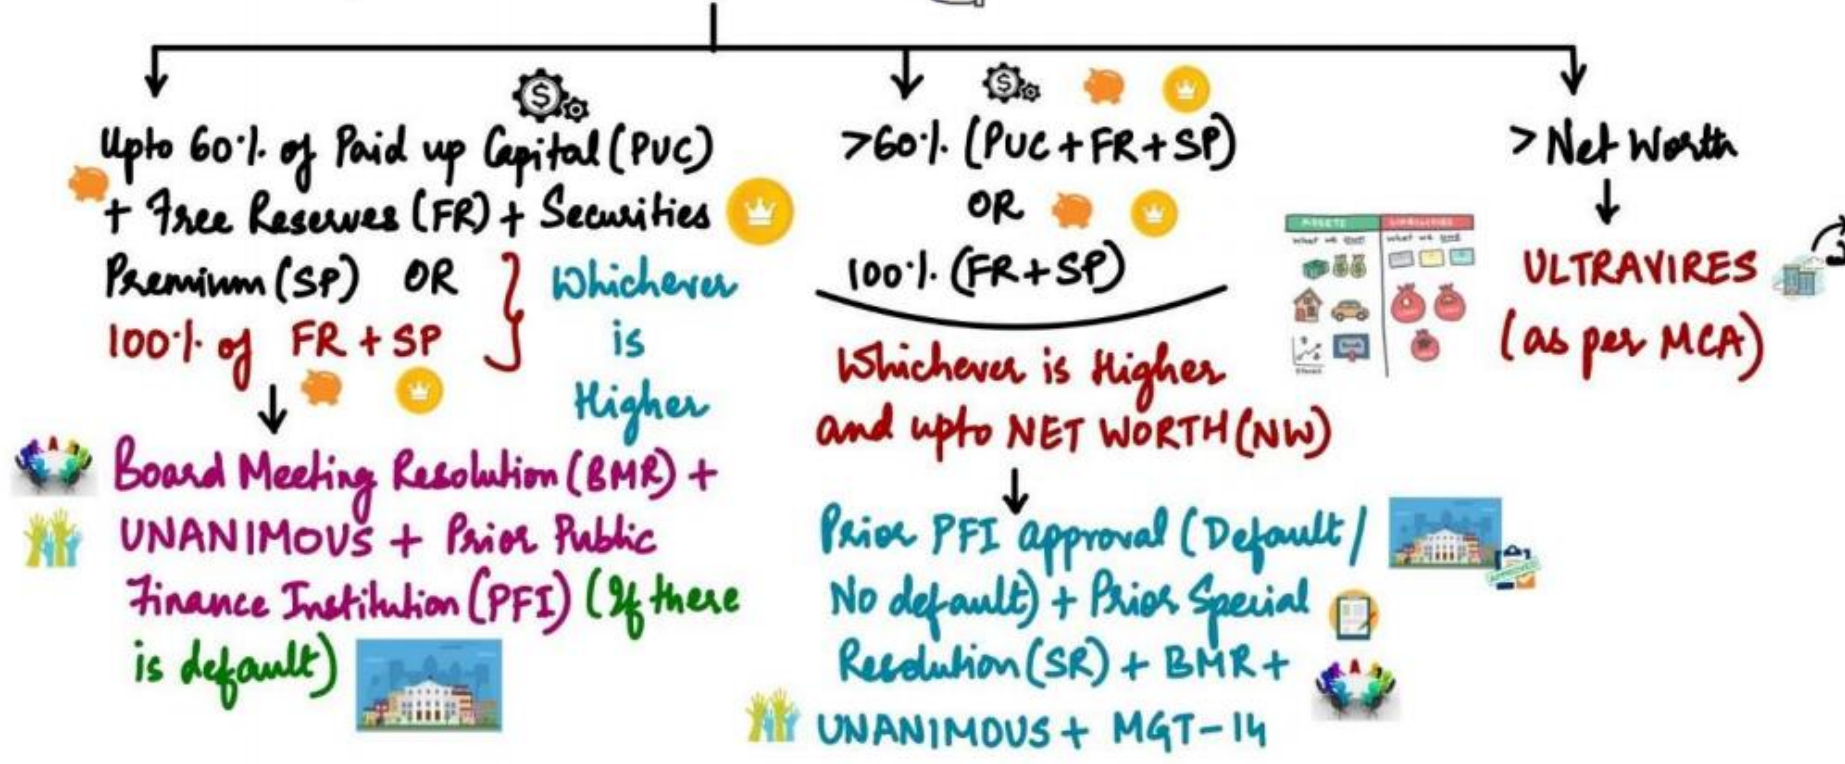 Upto 60% of Paid up Capital (PUC)
+ Free Reserves (FR) + Securities
Premium (SP) OR
100% of FR + SP
Whichever
is
Higher
Board Meeting Resolution (BMR) +
UNANIMOUS + Prior Public
Finance Institution (PFI) (If there
is default)
>60% (PUC + FR + SP)
OR
100% (FR + SP)
Whichever is Higher
and upto NET WORTH (NW)
Prior PFI approval (Default/
No default) + Prior Special
Resolution (SR) + BMR +
UNANIMOUS + MGT-14
APPROVED
ASSETS
What we own
LIABILITIES
What we owe
> Net Worth
ULTRAVIRES
(as per MCA)